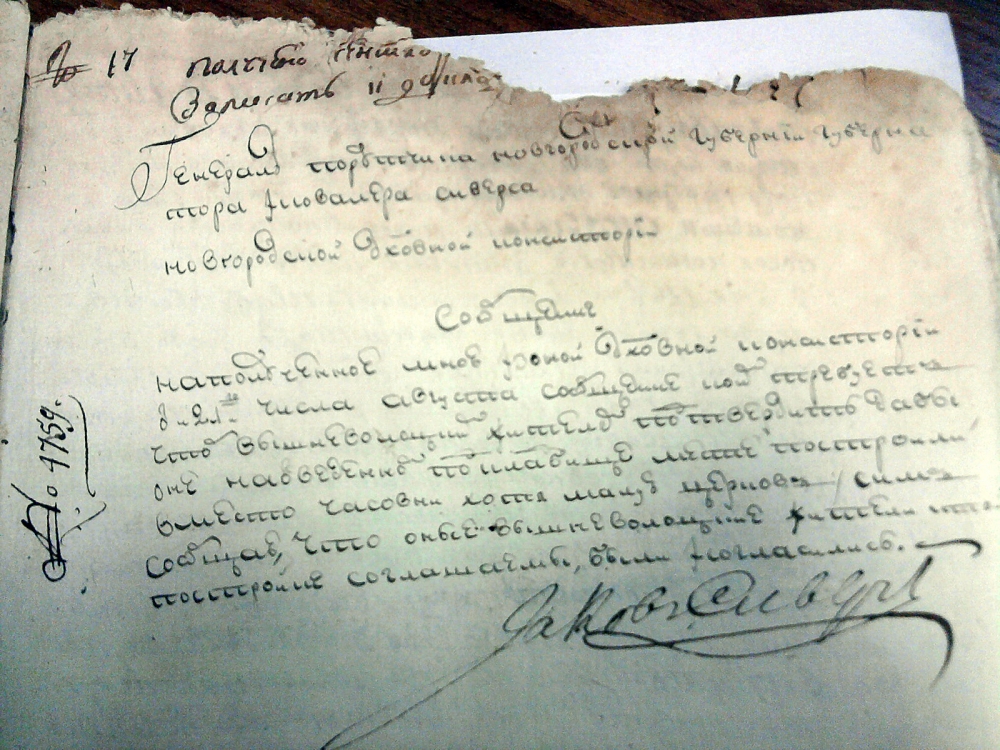 17 получено
Записать и
От
Генералъ порутчика новгородской губерніи губерна
тора икавалера сиверса
новгородской духовной консисторіи
Сообщение
наполученное мною изоной духовной консисторіи
21 числа августа сообщение коим требуетца
что вышневолоцкий жителей подтвердить дабы
оне на кладбище постро или
вместо часовни хотя малую церковь / симъ
сообщаю, что оные вышневолоцкие жители
построике соглашаемы были исогласились.
Яковъ Сиверсъ
No 4759.